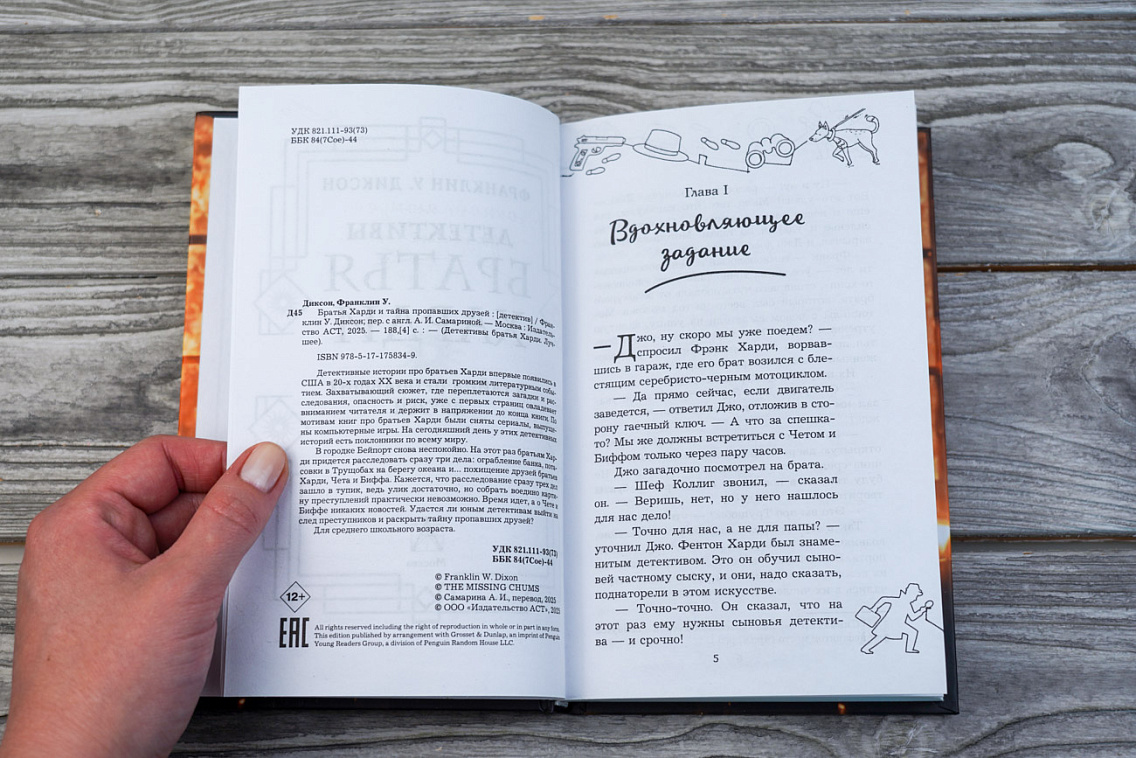 УДК 821.111-93(73)
ББК 84(7Сое)-44
Диксон, Франклин У.
Д45 Братья Харди и тайна пропавших друзей : [детектив] / Фран-
клин У. Диксон; пер. с англ. А. И. Самариной. — Москва : Издатель-
ство АСТ, 2025. — 188,[4] с. : — (Детективы братья Харди. Луч-
шее).
ISBN 978-5-17-175834-9.
Детективные истории про братьев Харди впервые появились в
США в 20-х годах XX века и стали громким литературным собы-
тием. Захватывающий сюжет, где переплетаются загадки и рас-
следования, опасность и риск, уже с первых страниц овладевает
вниманием читателя и держит в напряжении до конца книги. По
мотивам книг про братьев Харди были сняты сериалы, выпуще-
ны компьютерные игры. На сегодняшний день у этих детективных
историй есть поклонники по всему миру.
В городке Бейпорт снова неспокойно. На этот раз братьям Хар-
ди придется расследовать сразу три дела: ограбление банка, пота-
совки в Трущобах на берегу океана и... похищение друзей братьев
Харди, Чета и Биффа. Кажется, что расследование сразу трех дел
зашло в тупик, ведь улик достаточно, но собрать воедино карти-
ну преступлений практически невозможно. Время идет, а о Чете и
Биффе никаких новостей. Удастся ли юным детективам выйти на
след преступников и раскрыть тайну пропавших друзей?
Для среднего школьного возраста.
УДК 821.111-93(73)
ББК 84(7Сое)-44
© Franklin W. Dixon
© THE MISSING CHUMS
© Самарина А. И., перевод, 2025
© ООО «Издательство АСТ», 2025
12+
EAC
All rights reserved including the right of reproduction in whole or in part in any form.
This edition published by arrangement with Grosset & Dunlap, an imprint of Penguin
Young Readers Group, a division of Penguin Random House LLC.
Глава I
Вдохновляющее
задание
— Джо, ну скоро мы уже поедем? —
спросил Фрэнк Харди, ворвав-
шись в гараж, где его брат возился с бле-
стящим серебристо-черным мотоциклом.
— Да прямо сейчас, если двигатель
заведется, — ответил Джо, отложив в сто-
рону гаечный ключ. — А что за спешка-
то? Мы же должны встретиться с Четом и
Биффом только через пару часов.
Джо загадочно посмотрел на брата.
— Шеф Коллиг звонил, — сказал
он. — Веришь, нет, но у него нашлось
для нас дело!
— Точно для нас, а не для папы? —
уточнил Джо. Фентон Харди был знаме-
нитым детективом. Это он обучил сыно-
вей частному сыску, и они, надо сказать,
поднаторели в этом искусстве.
— Точно-точно. Он сказал, что на
этот раз ему нужны сыновья детекти-
ва — и срочно!
5